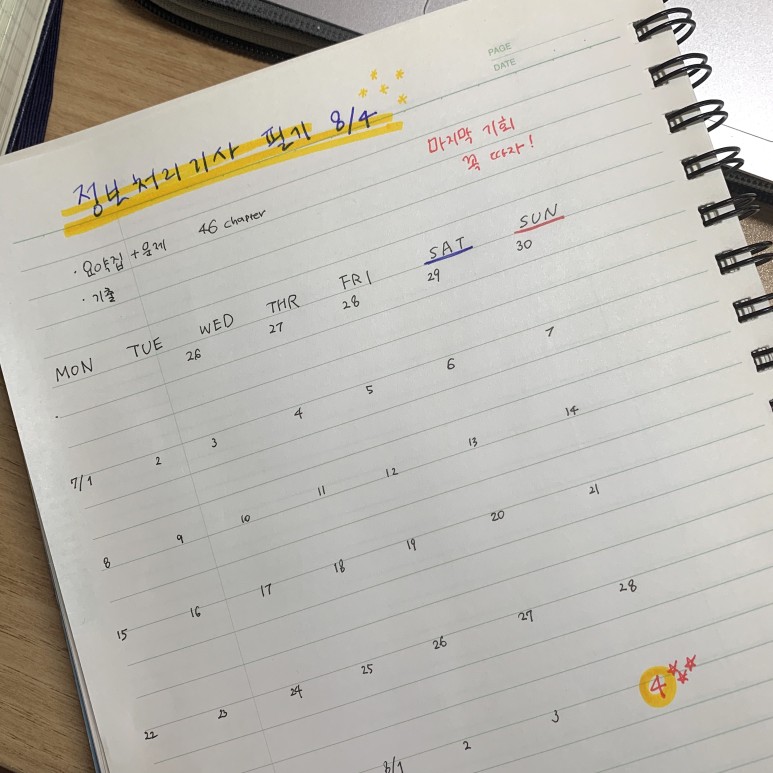 PAGE
DATE
정보처리기사 필기 8/4
마지막 기회
꼭 따자!
· 요약집 + 문제 46 chapter
· 기출
MON TUE WED THR FRI SAT SUN
26 27 28 29 30
7/1 2 3 4 5 6 7
8 9 10 11 12 13 14
15 16 17 18 19 20 21
22 23 24 25 26 27 28
8/1 2 3 4